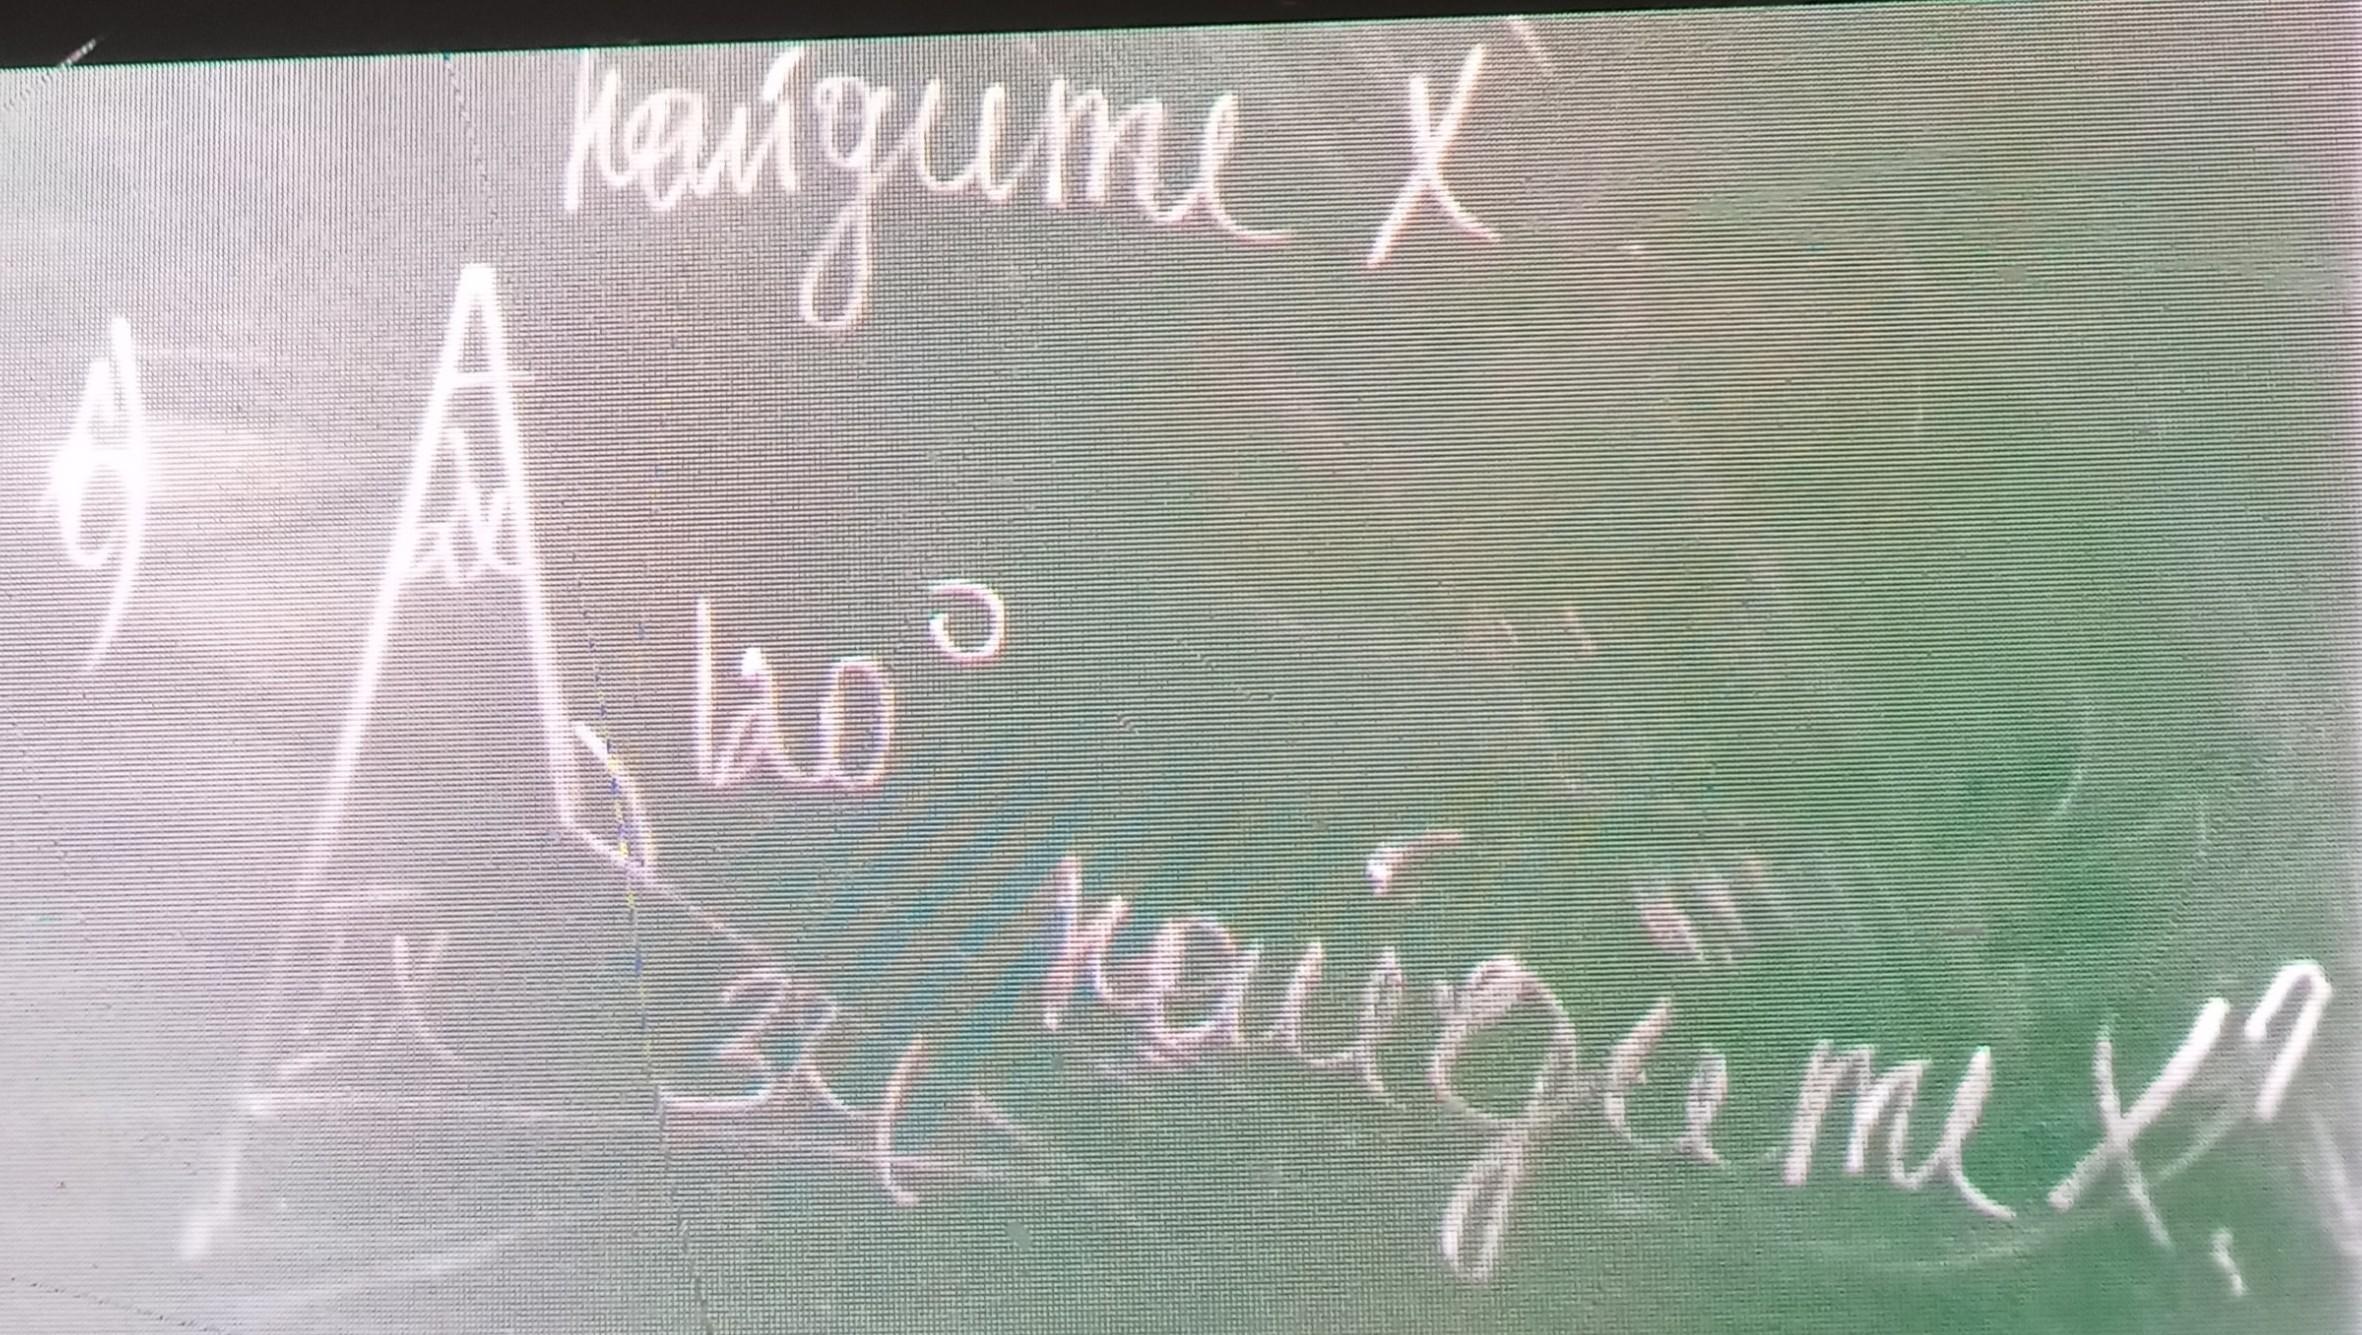 найдите X
в)
2x
120°
5x
3x
найдите X, ?